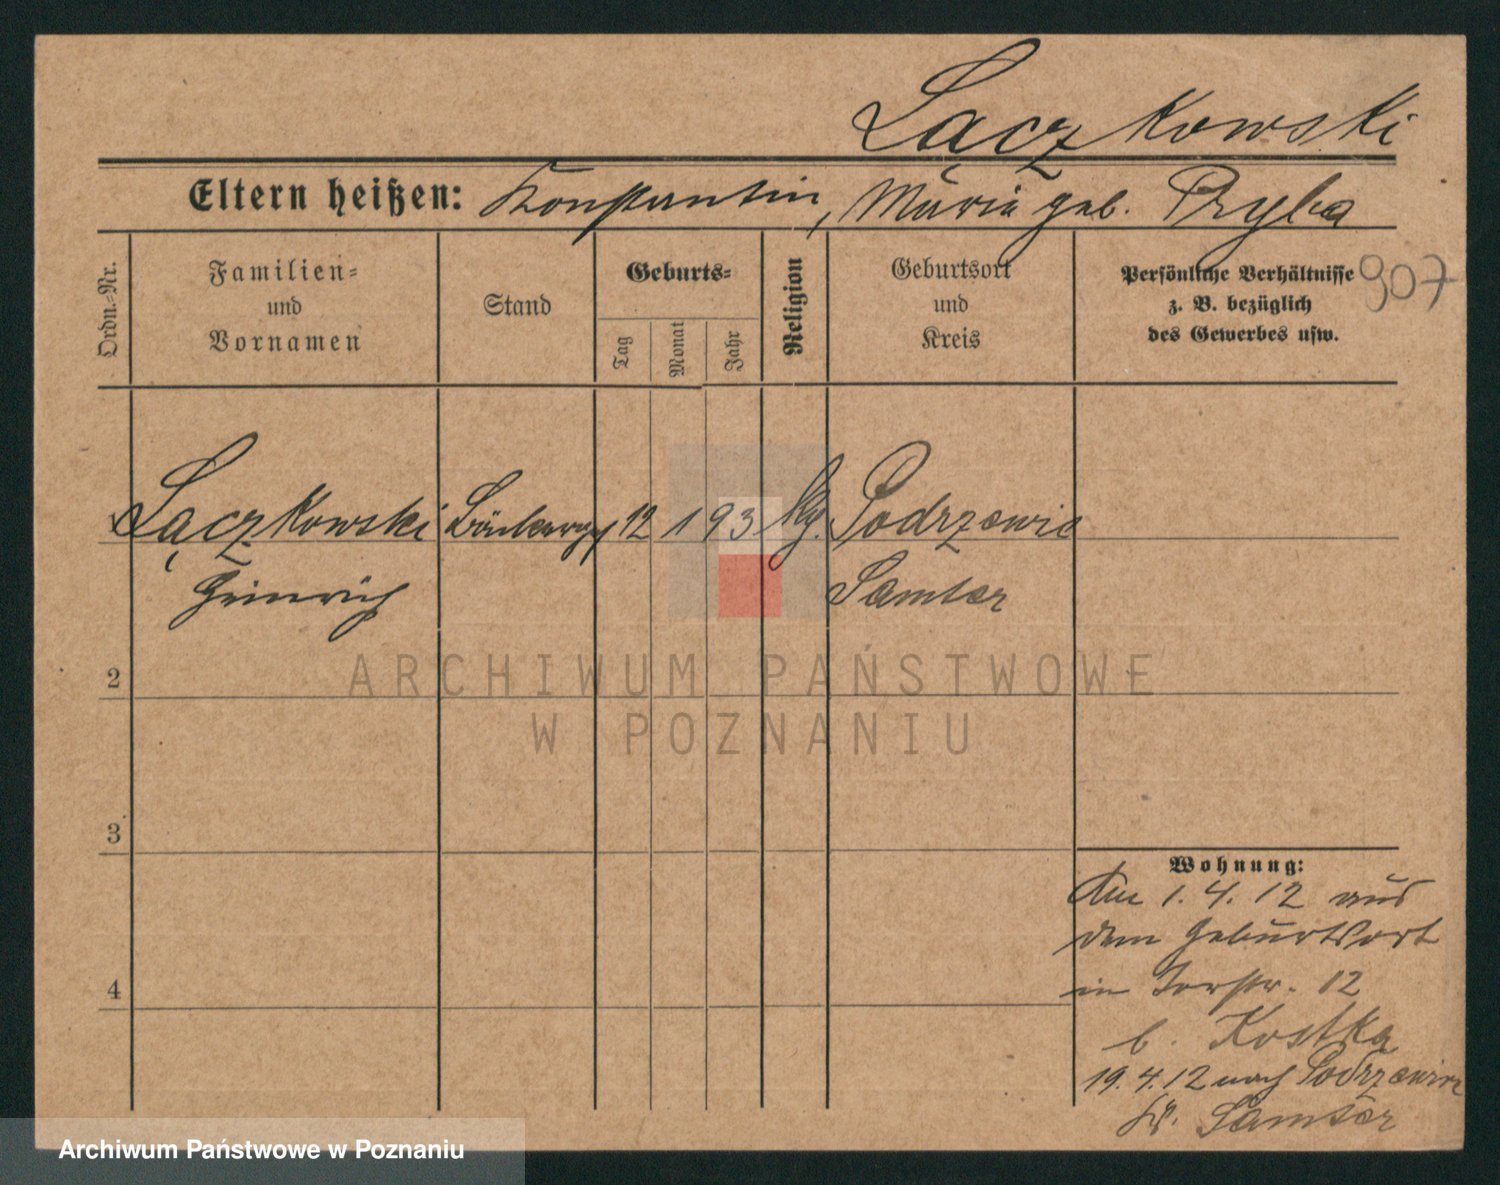 Łączkowski
Eltern heißen: Konstantin, Maria geb. Pryba
Ordn.-Nr.
Familien-
und
Vornamen
Stand
Geburts-
Tag
Monat
Jahr
Religion
Geburtsort
und
Kreis
Persönliche Verhältnisse
z. B. bezüglich
des Gewerbes usw.
907
1 Łączkowski 12 1 93 Podrzewie
Heinrich Samter
2
3
4
Wohnung:
Am 1. 4. 12 aus
dem Geburtsort
in Torstr. 12
b. Kostka
19. 4. 12 nach Podrzewie
Kr. Samter
ARCHIWUM PAŃSTWOWE
W POZNANIU
Archiwum Państwowe w Poznaniu